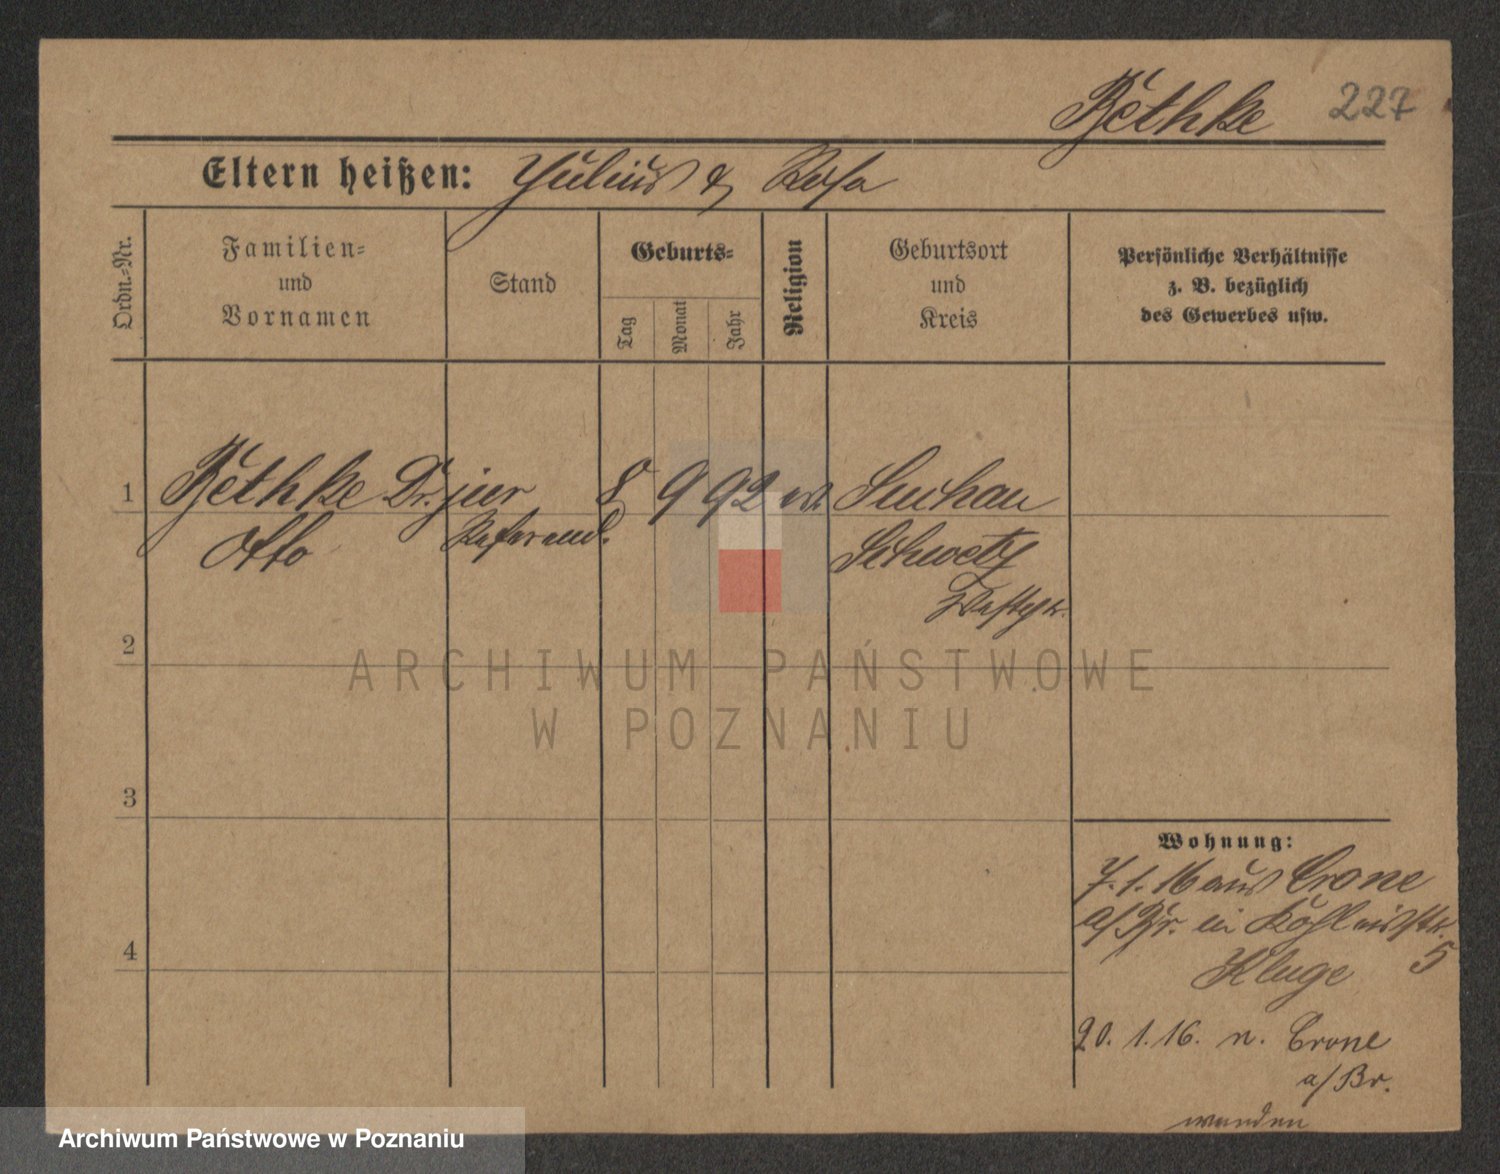 Bethke 227
Eltern heißen: Julius & Rosa
Ordn.-Nr.
Familien-
und
Vornamen
Stand
Geburts-
Tag
Monat
Jahr
Religion
Geburtsort
und
Kreis
Persönliche Verhältnisse
z. B. bezüglich
des Gewerbes usw.
1 Bethke Dr. jur 8 9 92 ev. Suchau
Otto Referend. Schwetz
Westpr.
2
ARCHIWUM PAŃSTWOWE
W POZNANIU
3
Wohnung:
7. 1. 16 aus Crone
a/Br. in
5
Kluge
4
20. 1. 16. n. Crone
a/Br.
wenden
Archiwum Państwowe w Poznaniu